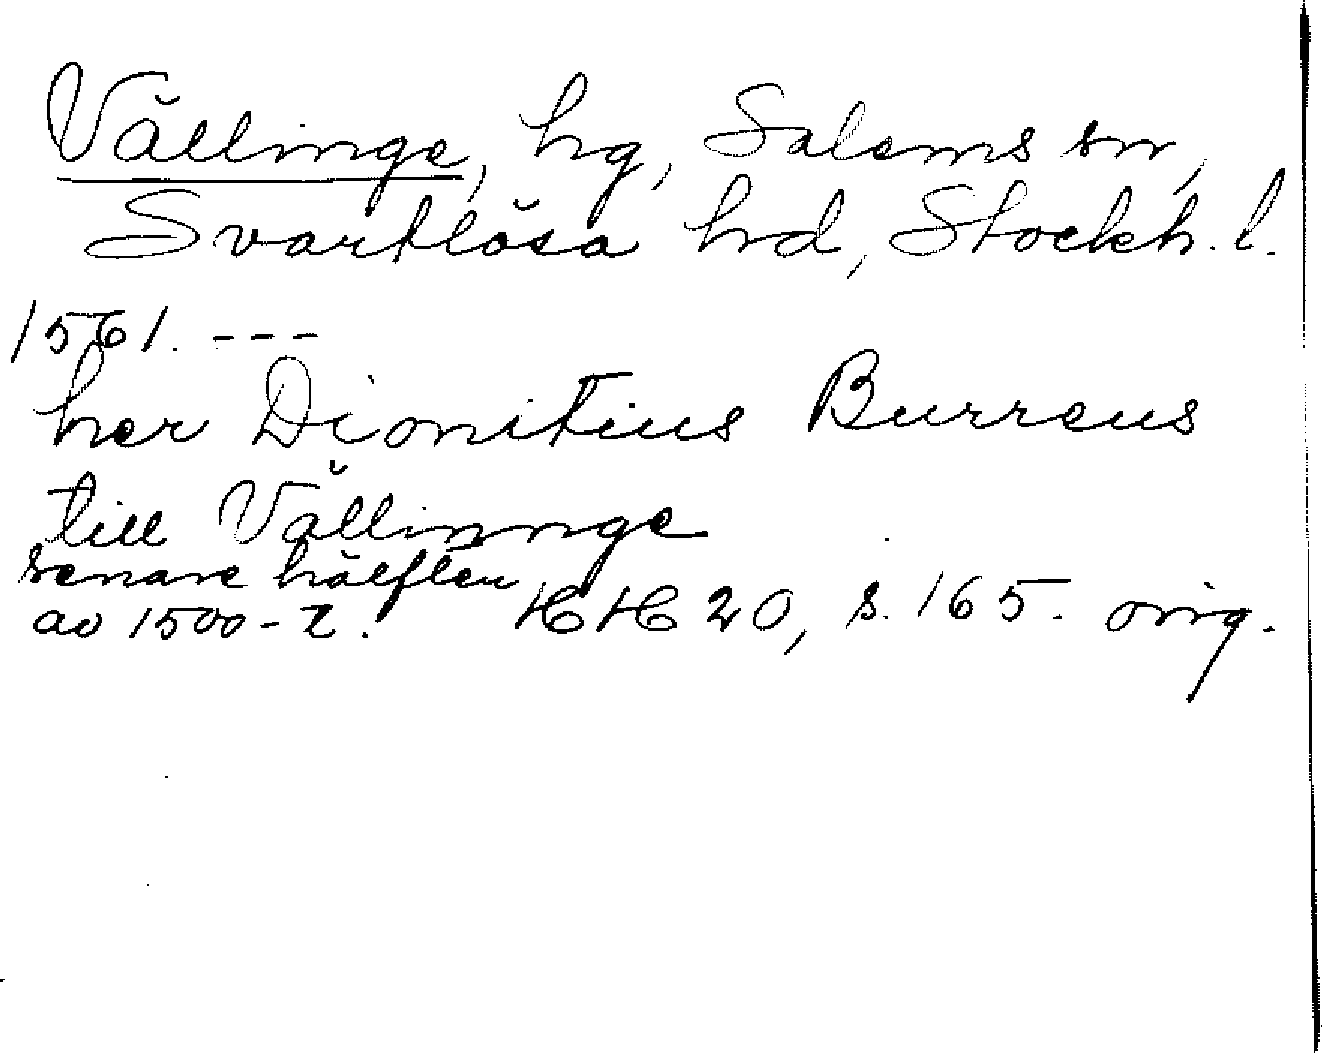 Vällinge, hg, Salems sn,
Svartlösa hd, Stockh. l.
1561. ---
her Dionitius Burreus
till Vällinnge
senare hälften
av 1500-t. HH 20, s. 165. orig.